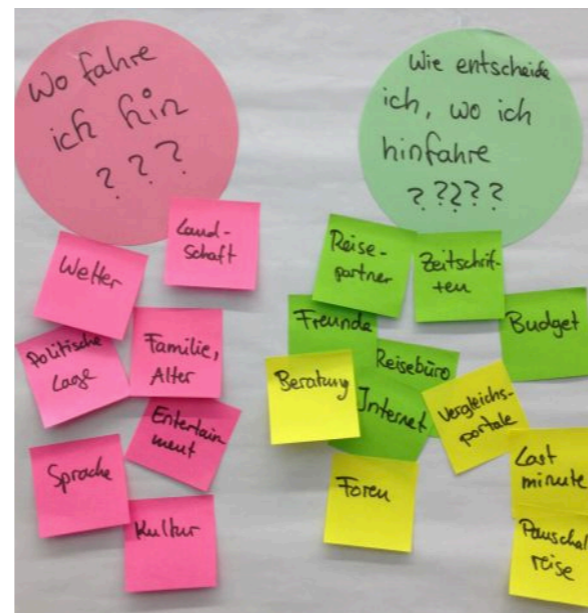 Wo fahre
ich hin
? ? ?
Land-
schaft
Wetter
Politische
Lage
Familie,
Alter
Entertain
ment
Sprache
Kultur
Wie entscheide
ich, wo ich
hinfahre
? ????
Reise-
partner
Zeitschrif-
ten
Freunde
Budget
Reisebüro
Beratung
Internet
Vergleichs-
portale
Foren
Last
minute
Pauschal
reise